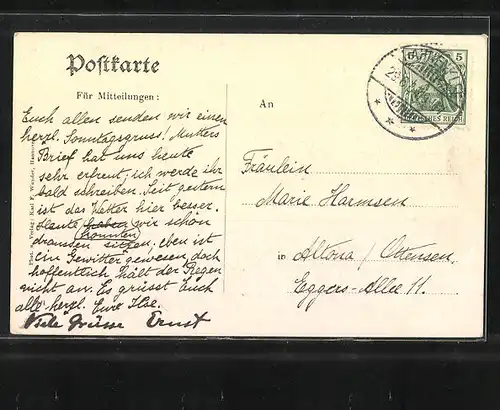 Postkarte
Für Mitteilungen:
An
Euch allen senden wir einen
herzl. Sonntagsgruss! Mutters
Brief hat uns heute
sehr erfreut, ich werde ihr
bald schreiben. Seit gestern
ist das Wetter hier besser.
Heute haben wir schön
(konnten)
draussen sitzen, eben ist
ein Gewitter gewesen, doch
hoffentlich hält der Regen
nicht an. Es grüsst Euch
alle herzl. Eure Ilse.
Viele Grüsse Ernst
Fräulein
Marie Harmsen
in Altona / Ottensen
Eggers-Allee 11.
5
Verlag: Karl F. Wunder, Hannover